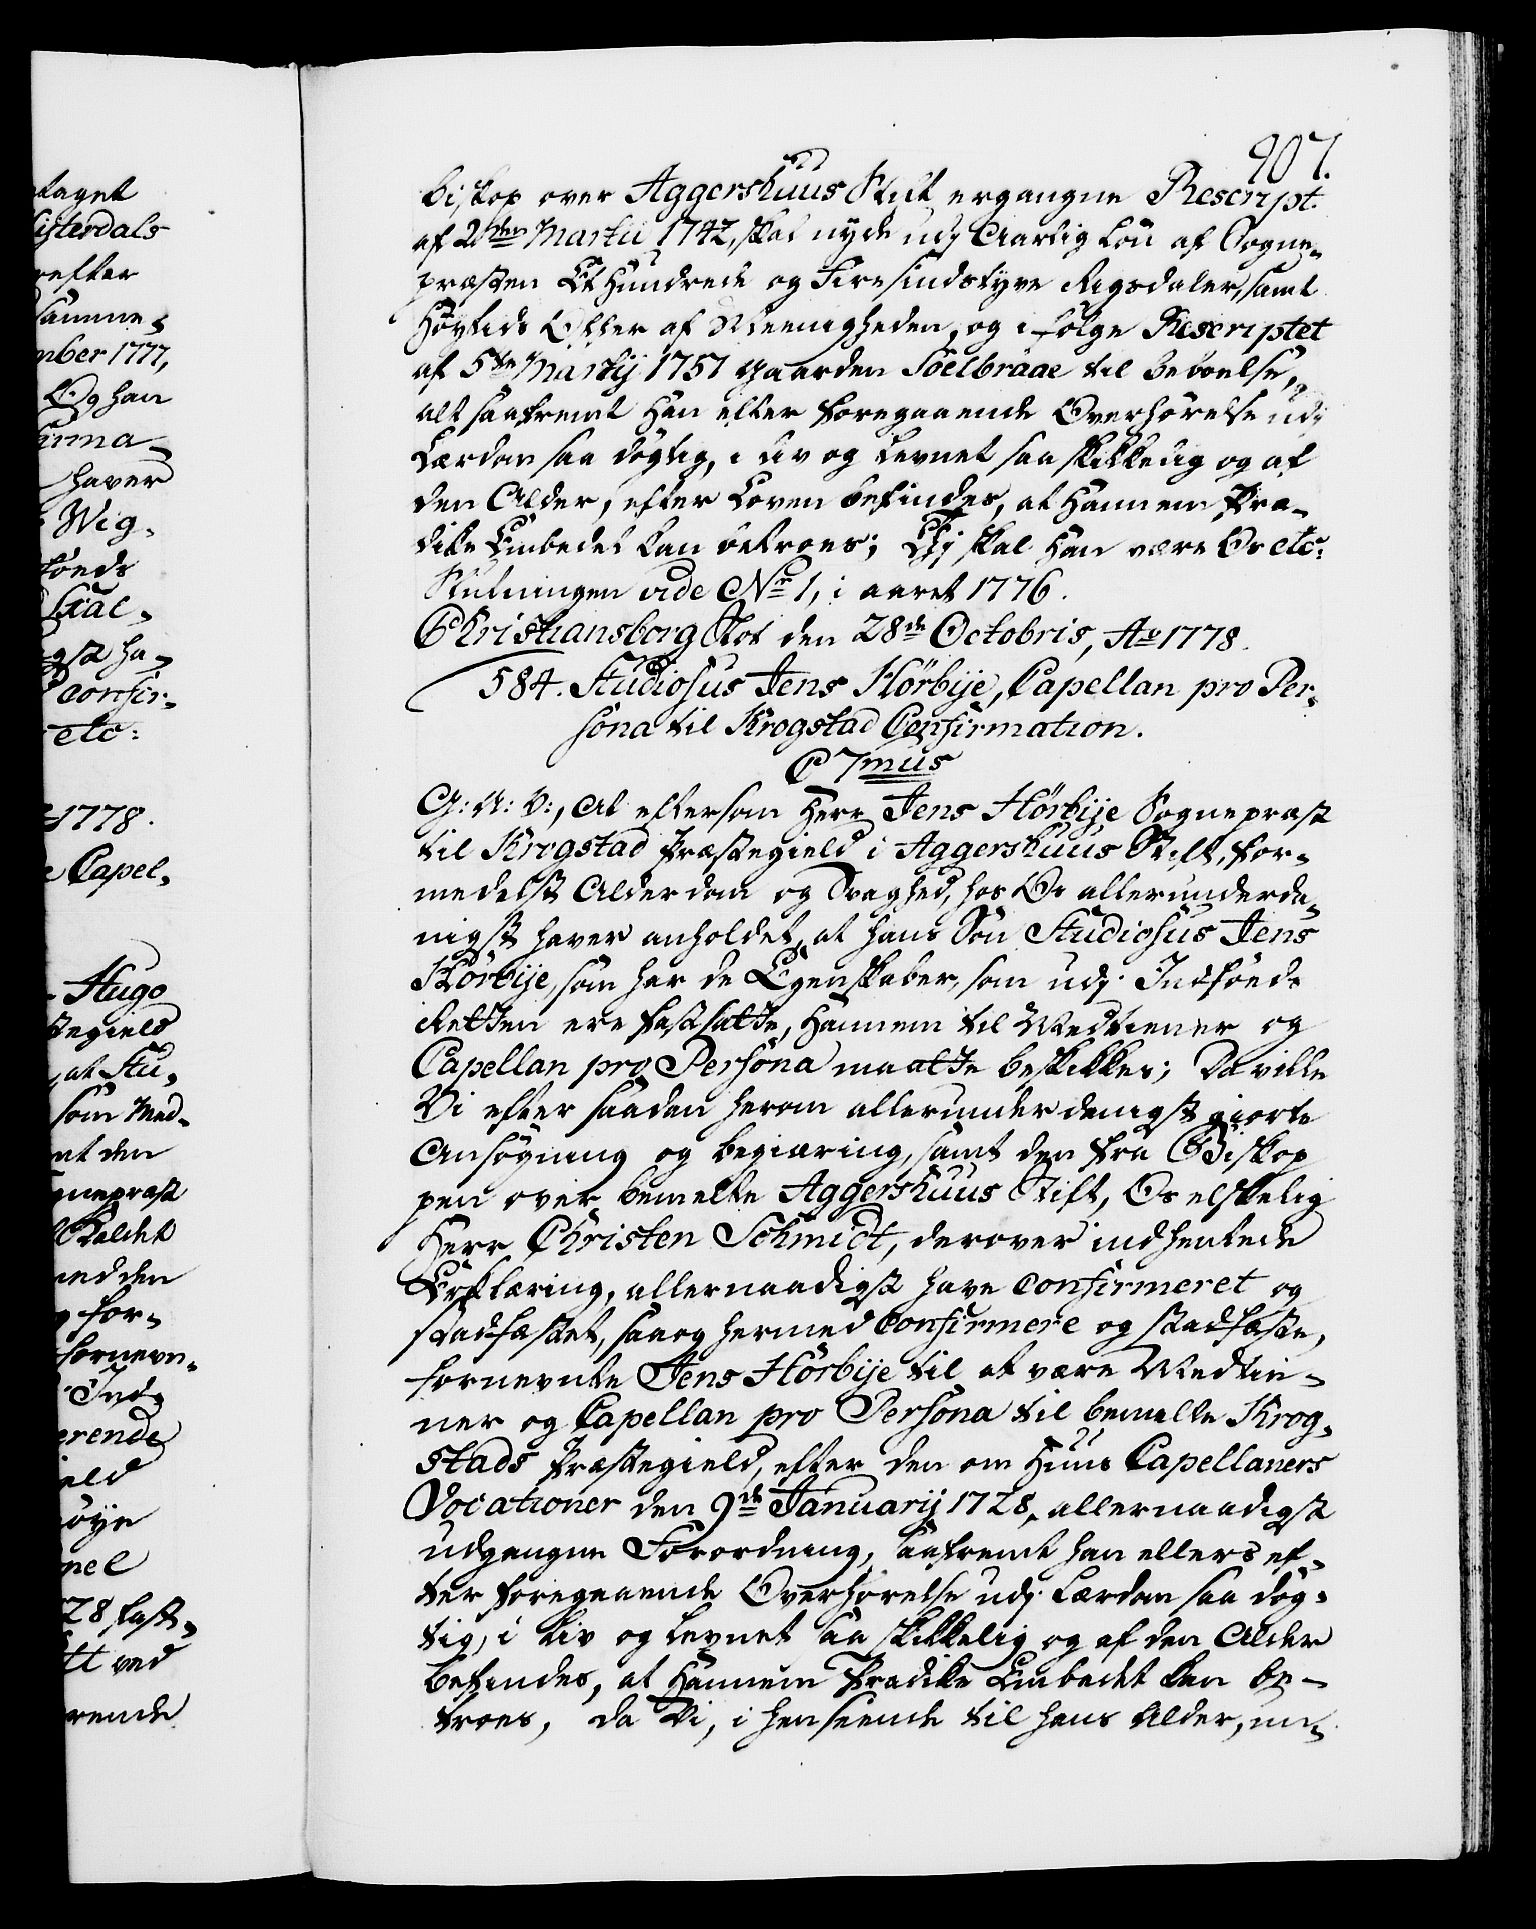 907.
Biskop over Aggershuus Stift ergangne Rescript
af 2den Martii 1742, skal nyde udj Aarlig Løn af Sogne-
præsten Et Hundrede og Firesindstyve Rigsdaler, samt
Høytids Offer af Meenigheden, og i følge Rescriptet
af 5te Martij 1751 Gaarden Soelbraae til beboelse,
alt saafremt Han efter foregaaende Overhørelse udj
Lærdom saa dygtig, i Liv og Levnet saa skikkelig og af
den Alder, efter Loven befindes, at Hannem Præ-
dike Embedet kan betroes; Thj skal Han være Os etc:
Slutningen vide No 1, i aaret 1776.
Christiansborg Slot den 28de Octobris, Ao 1778.
584. Studiosus Jens Hörbije, Capellan pro Per-
sona til Krogstad Confirmation.
C 7mus
G: A: V:, At eftersom Herr Jens Hörbije Sognepræst
til Krogstad Præstegield i Aggershuus Stift, for-
medelst Alderdom og Svaghed, hos Os allerunderda-
nigst haver anholdet, at hans Søn Studiosus Jens
Hörbije, som har de Egenskaber, som udj Indføeds
Retten ere fastsatte, Hannem til Medtiener og
Capellan pro Persona maatte beskikkes; Da ville
Vi efter saadan herom allerunderdanigst giorte
Ansøgning og begiæring, samt den fra Biskop
pen over bemelte Aggershuus Stift, Os elskelig
Herr Christen Schmidt, derover indhentede
Erklæring, allernaadigst have confirmeret og
stadfæstet, saa og hermed confirmere og stadfæste,
fornevnte Jens Hörbije til at være Medtie-
ner og Capellan pro Persona til bemelte Krog-
stads Præstegield, efter den om Huus Capellaners
Vocationer den 9de Januarij 1728, allernaadigst
udgangne Forordning, saafremt han ellers ef-
ter foregaaende Overhørelse udj Lærdom saa dyg-
tig, i Liv og Levnet saa skikkelig og af den Alder
befindes, at Hannem Prædike Embedet kan be-
troes, da Vi, i henseende til hans Alder, un-